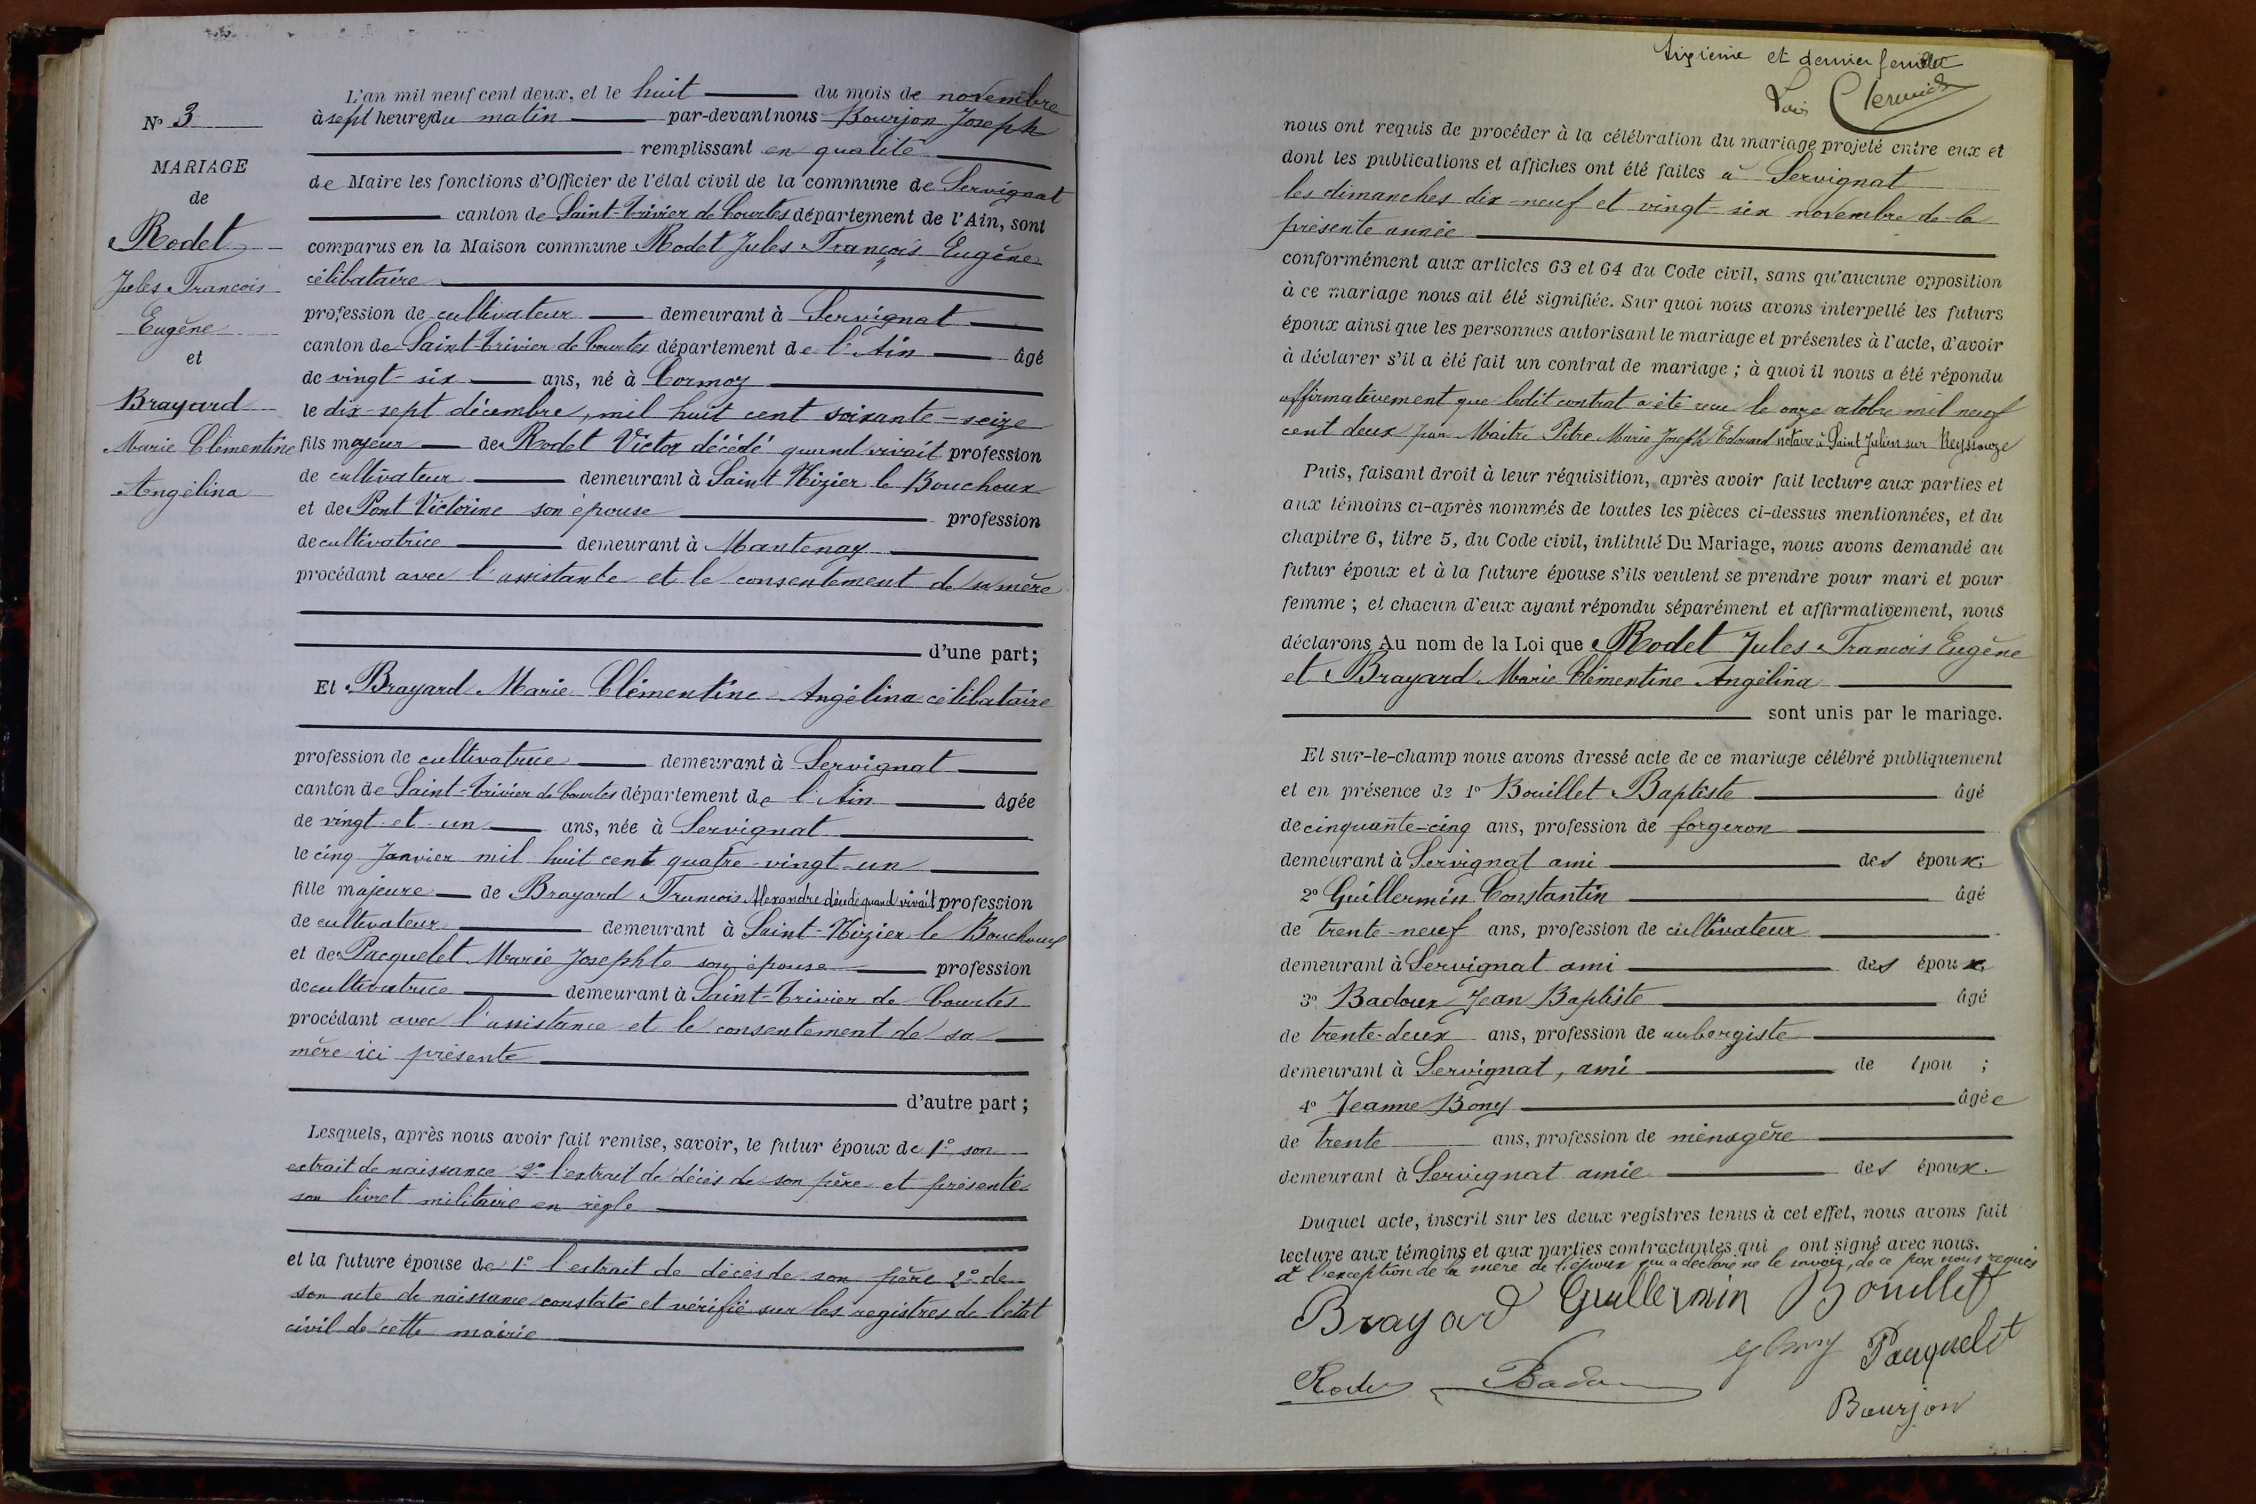 L'an mil neuf cent deux, et le huit du mois de novembre
à sept heures du matin par-devant nous Bourjon Joseph
remplissant en qualité
de Maire les fonctions d'Officier de l'état civil de la commune de Servignat
canton de Saint-Trivier de Courtes département de l'Ain, sont
comparus en la Maison commune Rodet Jules François Eugène
célibataire
profession de cultivateur demeurant à Servignat
canton de Saint-Trivier de Courtes département de l'Ain âgé
de vingt-six ans, né à Cormoz
le dix-sept décembre, mil huit cent soixante-seize
fils majeur de Rodet Victor décédé quand vivait profession
de cultivateur demeurant à Saint Nizier le Bouchoux
et de Pont Victorine son épouse profession
de cultivatrice demeurant à Mantenay
procédant avec l'assistance et le consentement de sa mère
d'une part;
Et Brayard Marie Clémentine Angélina célibataire
profession de cultivatrice demeurant à Servignat
canton de Saint-Trivier de Courtes département de l'Ain âgée
de vingt-et-un ans, née à Servignat
le cinq Janvier mil huit cent quatre-vingt-un
fille majeure de Brayard Francois Alexandre décédé quand vivait profession
de cultivateur demeurant à Saint-Nizier le Bouchoux
et de Pacquelet Marie Josephte son épouse profession
de cultivatrice demeurant à Saint-Trivier de Courtes
procédant avec l'assistance et le consentement de sa
mère ici présente
d'autre part;
Lesquels, après nous avoir fait remise, savoir, le futur époux de 1° son
extrait de naissance 2° l'extrait de décès de son père et présenté
son livret militaire en règle
et la future épouse de 1° l'extrait de décès de son père 2° de
son acte de naissance constaté et vérifié sur les registres de l'état
civil de cette mairie
N° 3
MARIAGE
de
Rodet
Jules Francois
Eugène
et
Brayard
Marie Clémentine
Angélina
Sixième et dernier feuillet
nous ont requis de procéder à la célébration du mariage projeté entre eux et
dont les publications et affiches ont été faites à Servignat
les dimanches dix-neuf et vingt-six novembre de la
présente année
conformément aux articles 63 et 64 du Code civil, sans qu'aucune opposition
à ce mariage nous ait été signifiée. Sur quoi nous avons interpellé les futurs
époux ainsi que les personnes autorisant le mariage et présentes à l'acte, d'avoir
à déclarer s'il a été fait un contrat de mariage ; à quoi il nous a été répondu
affirmativement que ledit contrat a été reçu le onze octobre mil neuf
cent deux par Maître Pitre Marie Joseph Edouard notaire à Saint Julien sur Reyssouze
Puis, faisant droit à leur réquisition, après avoir fait lecture aux parties et
aux témoins ci-après nommés de toutes les pièces ci-dessus mentionnées, et du
chapitre 6, titre 5, du Code civil, intitulé Du Mariage, nous avons demandé au
futur époux et à la future épouse s'ils veulent se prendre pour mari et pour
femme ; et chacun d'eux ayant répondu séparément et affirmativement, nous
déclarons Au nom de la Loi que Rodet Jules Francois Eugène
et Brayard Marie Clémentine Angélina
sont unis par le mariage.
Et sur-le-champ nous avons dressé acte de ce mariage célébré publiquement
et en présence de 1° Bouillet Baptiste âgé
de cinquante-cinq ans, profession de forgeron
demeurant à Servignat ami des époux;
2° Guillermin Constantin âgé
de trente-neuf ans, profession de cultivateur
demeurant à Servignat ami des époux;
3° Badoux Jean Baptiste âgé
de trente-deux ans, profession de aubergiste
demeurant à Servignat, ami de épou ;
4° Jeanne Bony âgée
de trente ans, profession de ménagère
demeurant à Servignat amie des époux.
Duquel acte, inscrit sur les deux registres tenus à cet effet, nous avons fait
lecture aux témoins et aux parties contractantes qui ont signé avec nous.
à l'exception de la mère de l'époux qui a déclaré ne le savoir, de ce par nous requis
Brayard Guillermin Bouillet
Pacquelet
Rodet Badoux
Bourjon